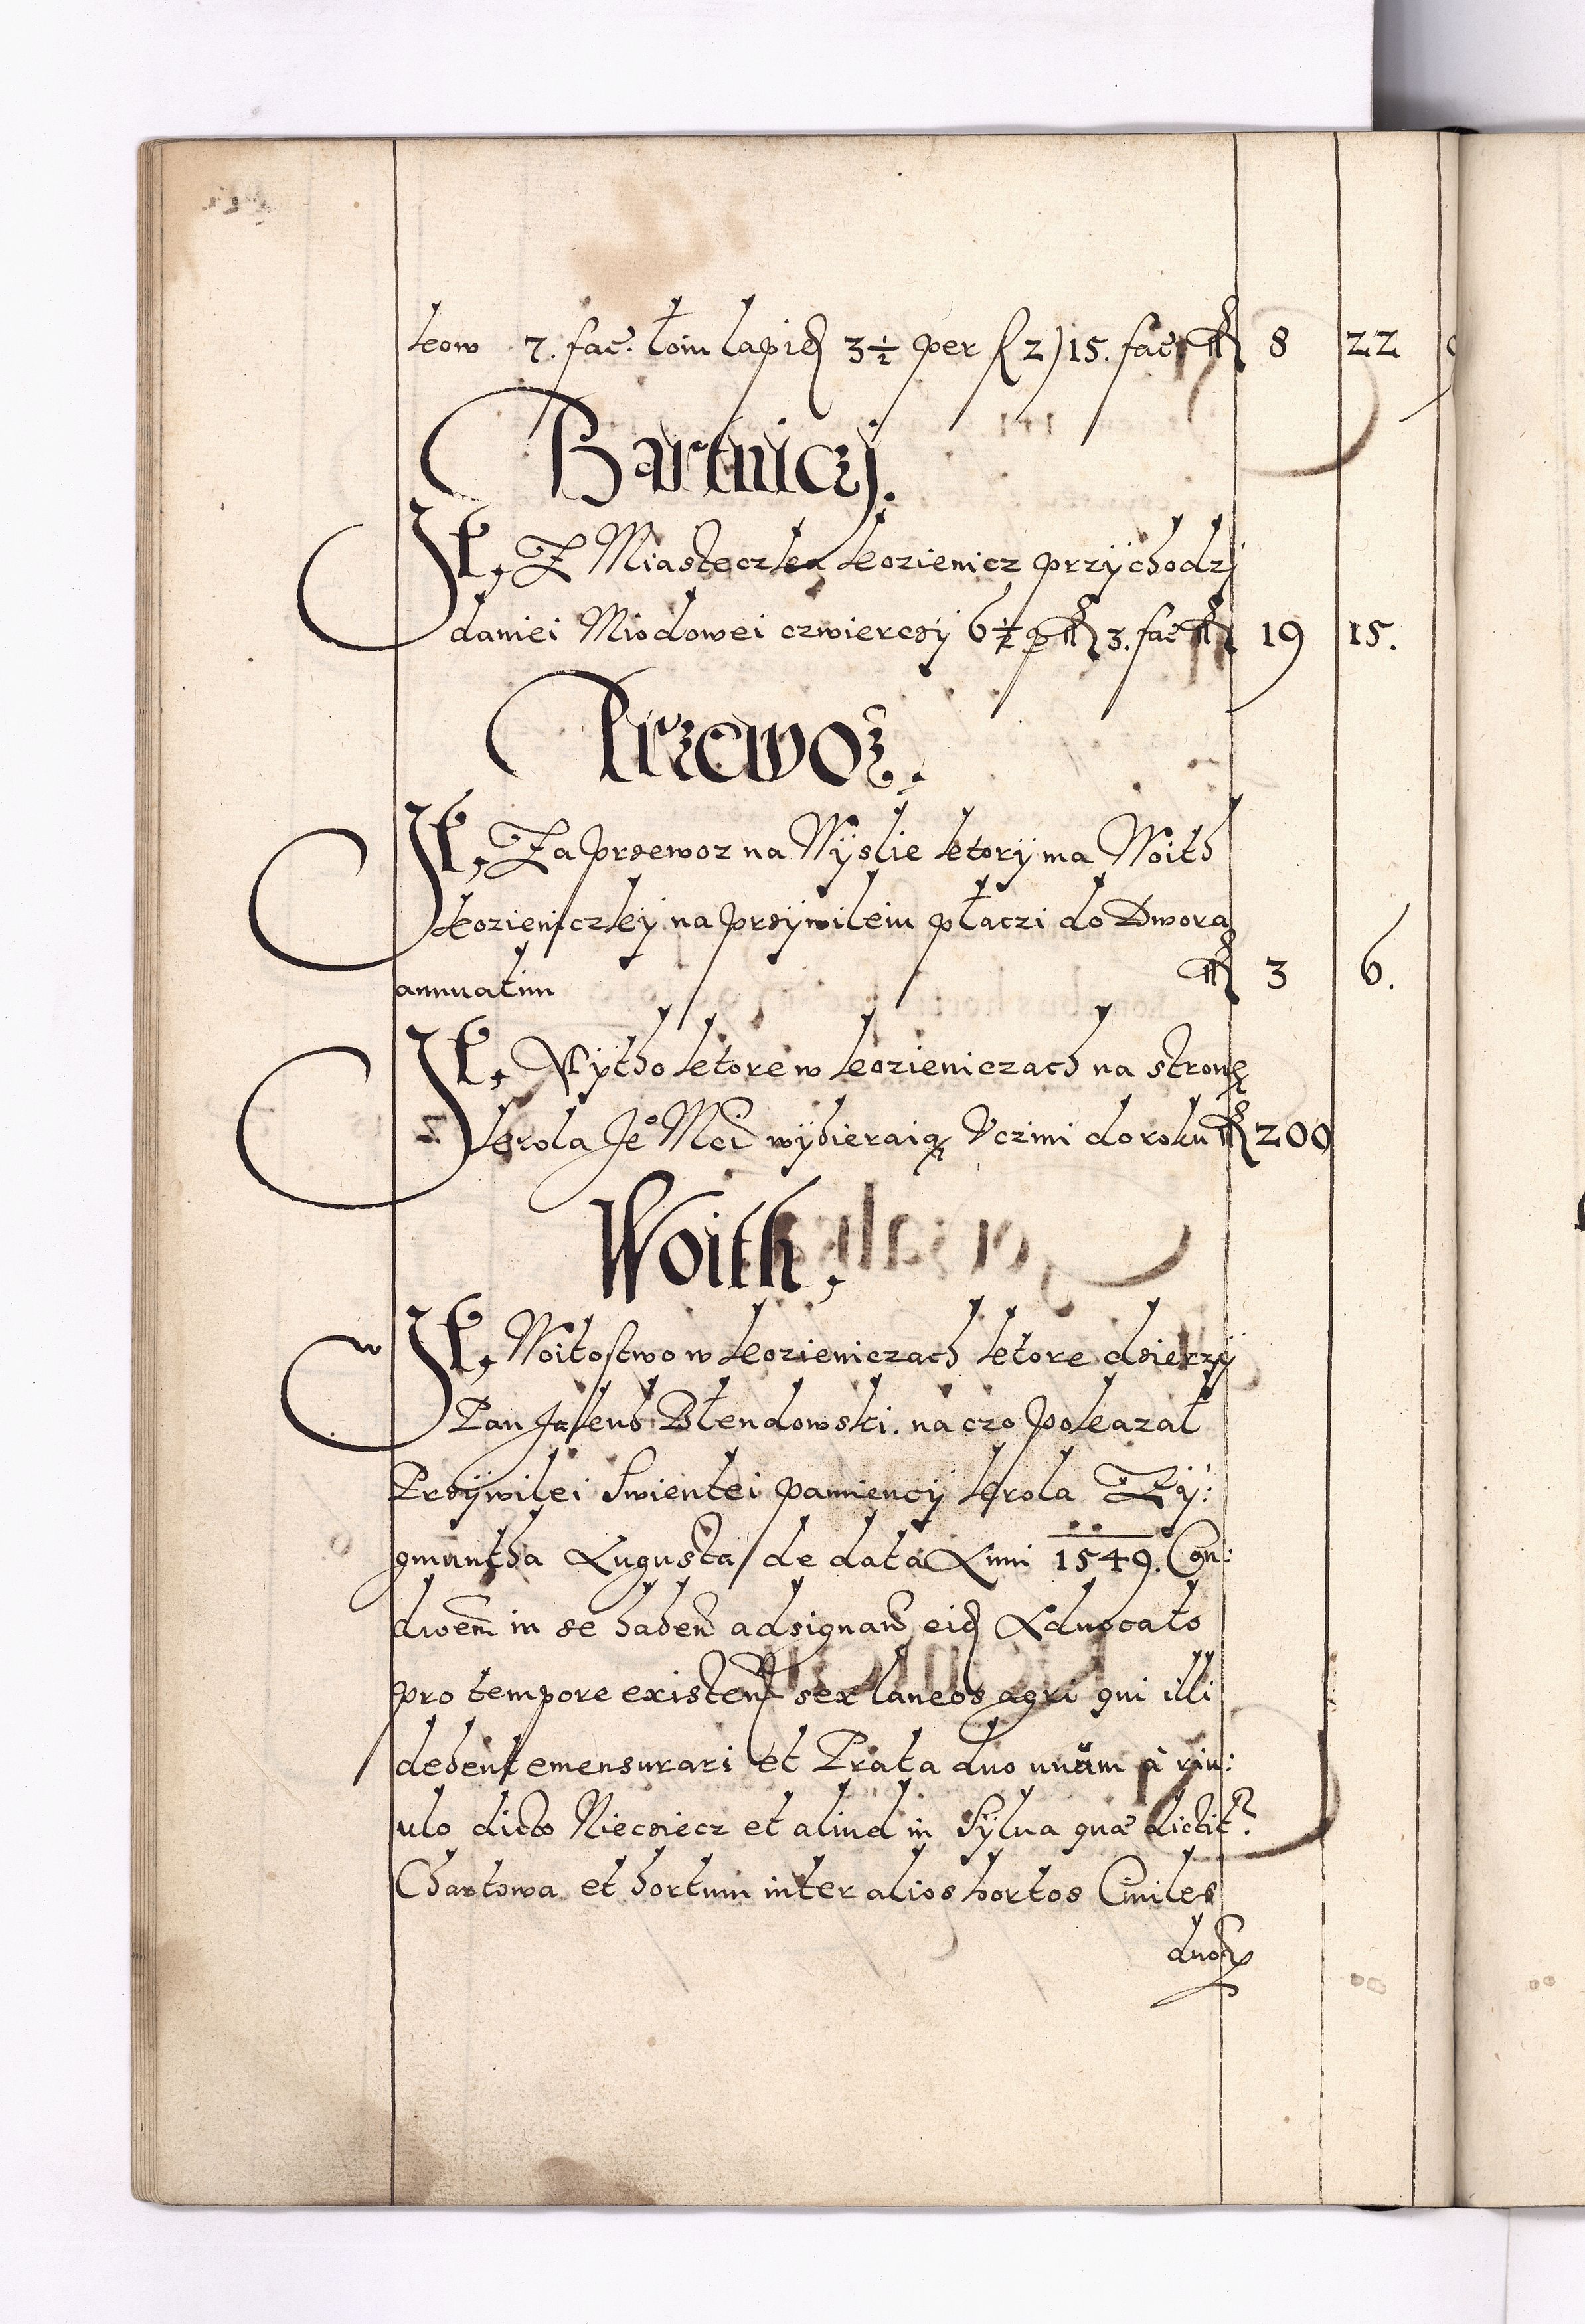 kow 7. fac. łoiu lapid 3½ per f 2/15. fac fl 8 22 9
Bartniczj.
It, Z Miasteczka kozienicz przÿchodzj
daniei Miodowei czwierczÿ 6½ p fl 3. fac fl 19 15.
Przewoz.
It, Za przewoz na Wÿslie ktorÿ ma Woith
kozieniczkÿ na przÿwileiu płaczi do Dwora
annuatim fl 3 6.
It, Mÿtho ktore w kozieniczach na stronę
krola Je° Mći wÿbieraią Vczini do roku fl 200
Woith,
It, Woitostwo w kozieniczach ktore dzierzÿ
Pan Jakub Błendowski. na czo pokazał
Przÿwilei Swientei pamienczÿ krola Zÿ:
gmuntha Augusta de data Anni 1549. Con:
dicoem in se haben adsignan eid Aduocato
pro tempore existen sex laneos agri qui illi
debent emensurari et Prata duo unum à riu:
ulo dicto Niecziecz et aliud in Sÿlua quæ dicit.
Chartowa et hortum inter alios hortos Ciuiles
duor